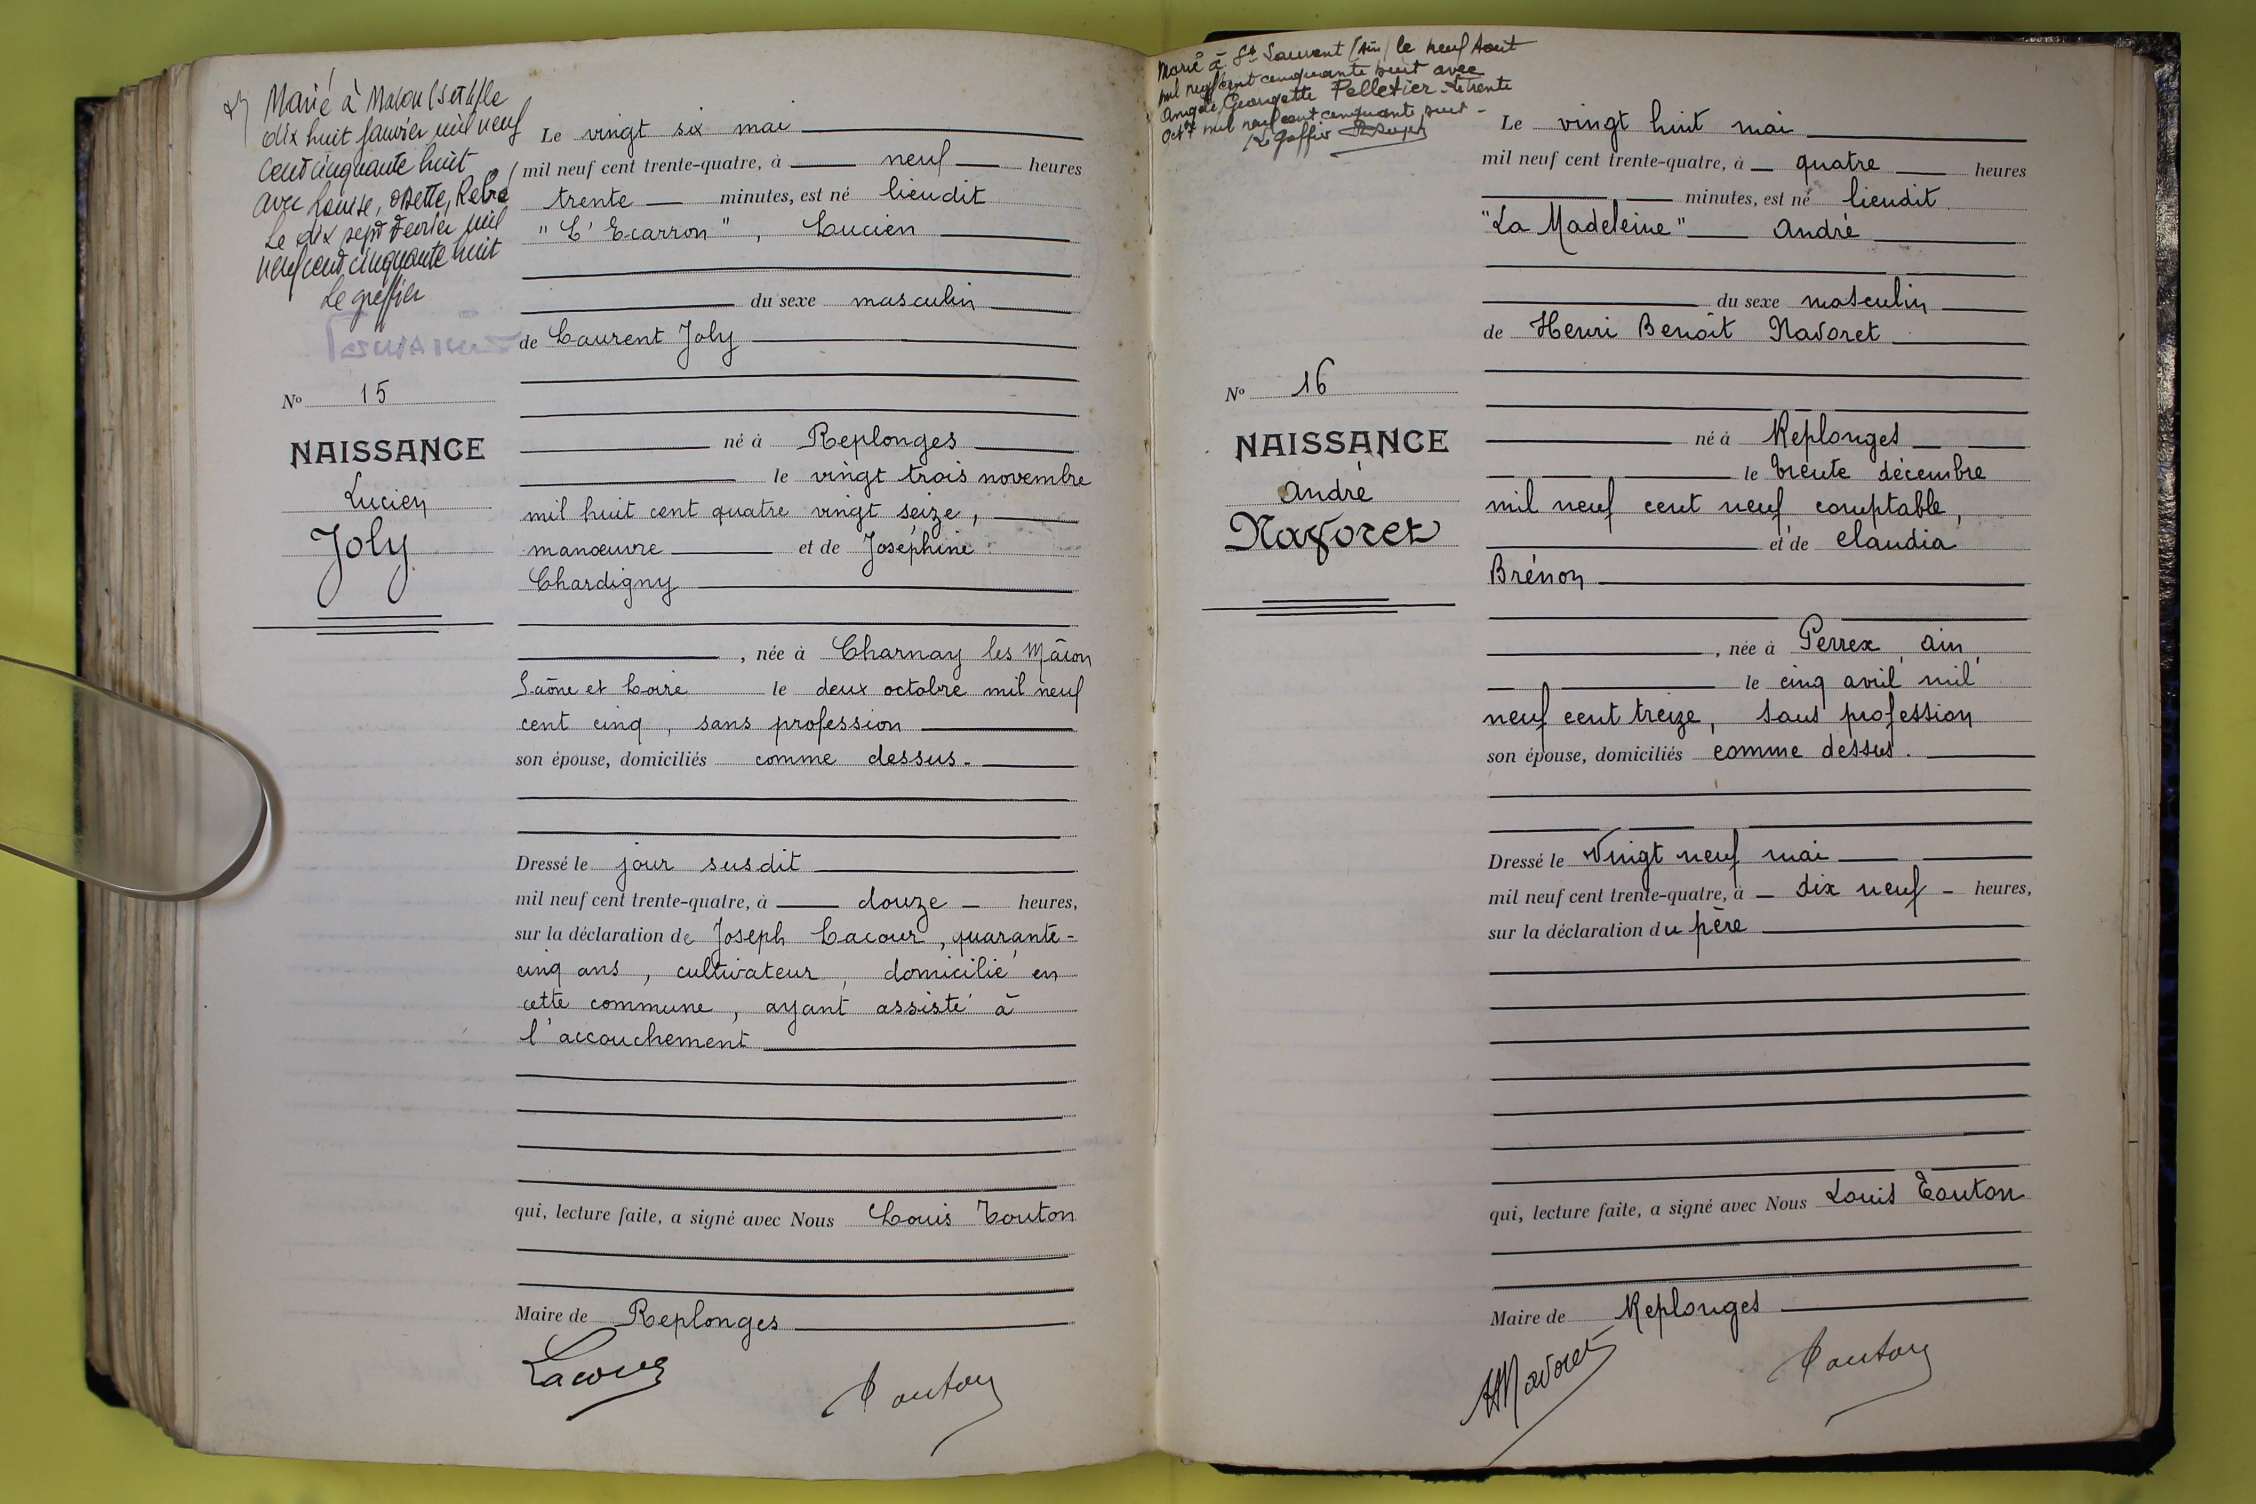 Marié à Macon (S et L) le
dix huit Janvier mil neuf
cent cinquante huit
avec Louise, Odette,
Le dix sept Fevrier mil
neuf cent cinquante huit
Le greffier
Nº 15
NAISSANCE
Lucien
Joly
Le vingt six mai
mil neuf cent trente-quatre, à neuf heures
trente minutes, est né lieudit
"L'Ecarron", Lucien
du sexe masculin
de Laurent Joly
né à Replonges
le vingt trois novembre
mil huit cent quatre vingt seize,
manœuvre et de Joséphine
Chardigny
, née à Charnay les Mâcon
Saône et Loire le deux octobre mil neuf
cent cinq, sans profession
son épouse, domiciliés comme dessus.
Dressé le jour susdit
mil neuf cent trente-quatre, à douze heures,
sur la déclaration de Joseph Lacour, quarante-
cinq ans, cultivateur, domicilié en
cette commune, ayant assisté à
l'accouchement
qui, lecture faite, a signé avec Nous Louis Touton
Maire de Replonges
Lacour
Touton
Marié à St (Ain) le neuf Aout
mil neuf cent cinquante huit avec
Angèle, Georgette Pelletier. Le trente
mil neuf cent cinquante huit -
Le Greffier
Nº 16
NAISSANCE
André
Navoret
Le vingt huit mai
mil neuf cent trente-quatre, à quatre heures
minutes, est né lieudit
"La Madeleine" André
du sexe masculin
de Henri Benoît Navoret
né à Replonges
le trente décembre
mil neuf cent neuf comptable,
et de Claudia
Brénon
, née à Perrex, Ain,
le cinq avril mil
neuf cent treize, sans profession
son épouse, domiciliés comme dessus.
Dressé le Vingt neuf mai
mil neuf cent trente-quatre, à dix neuf heures,
sur la déclaration du père
qui, lecture faite, a signé avec Nous Louis Touton
Maire de Replonges
HNavoret
Touton